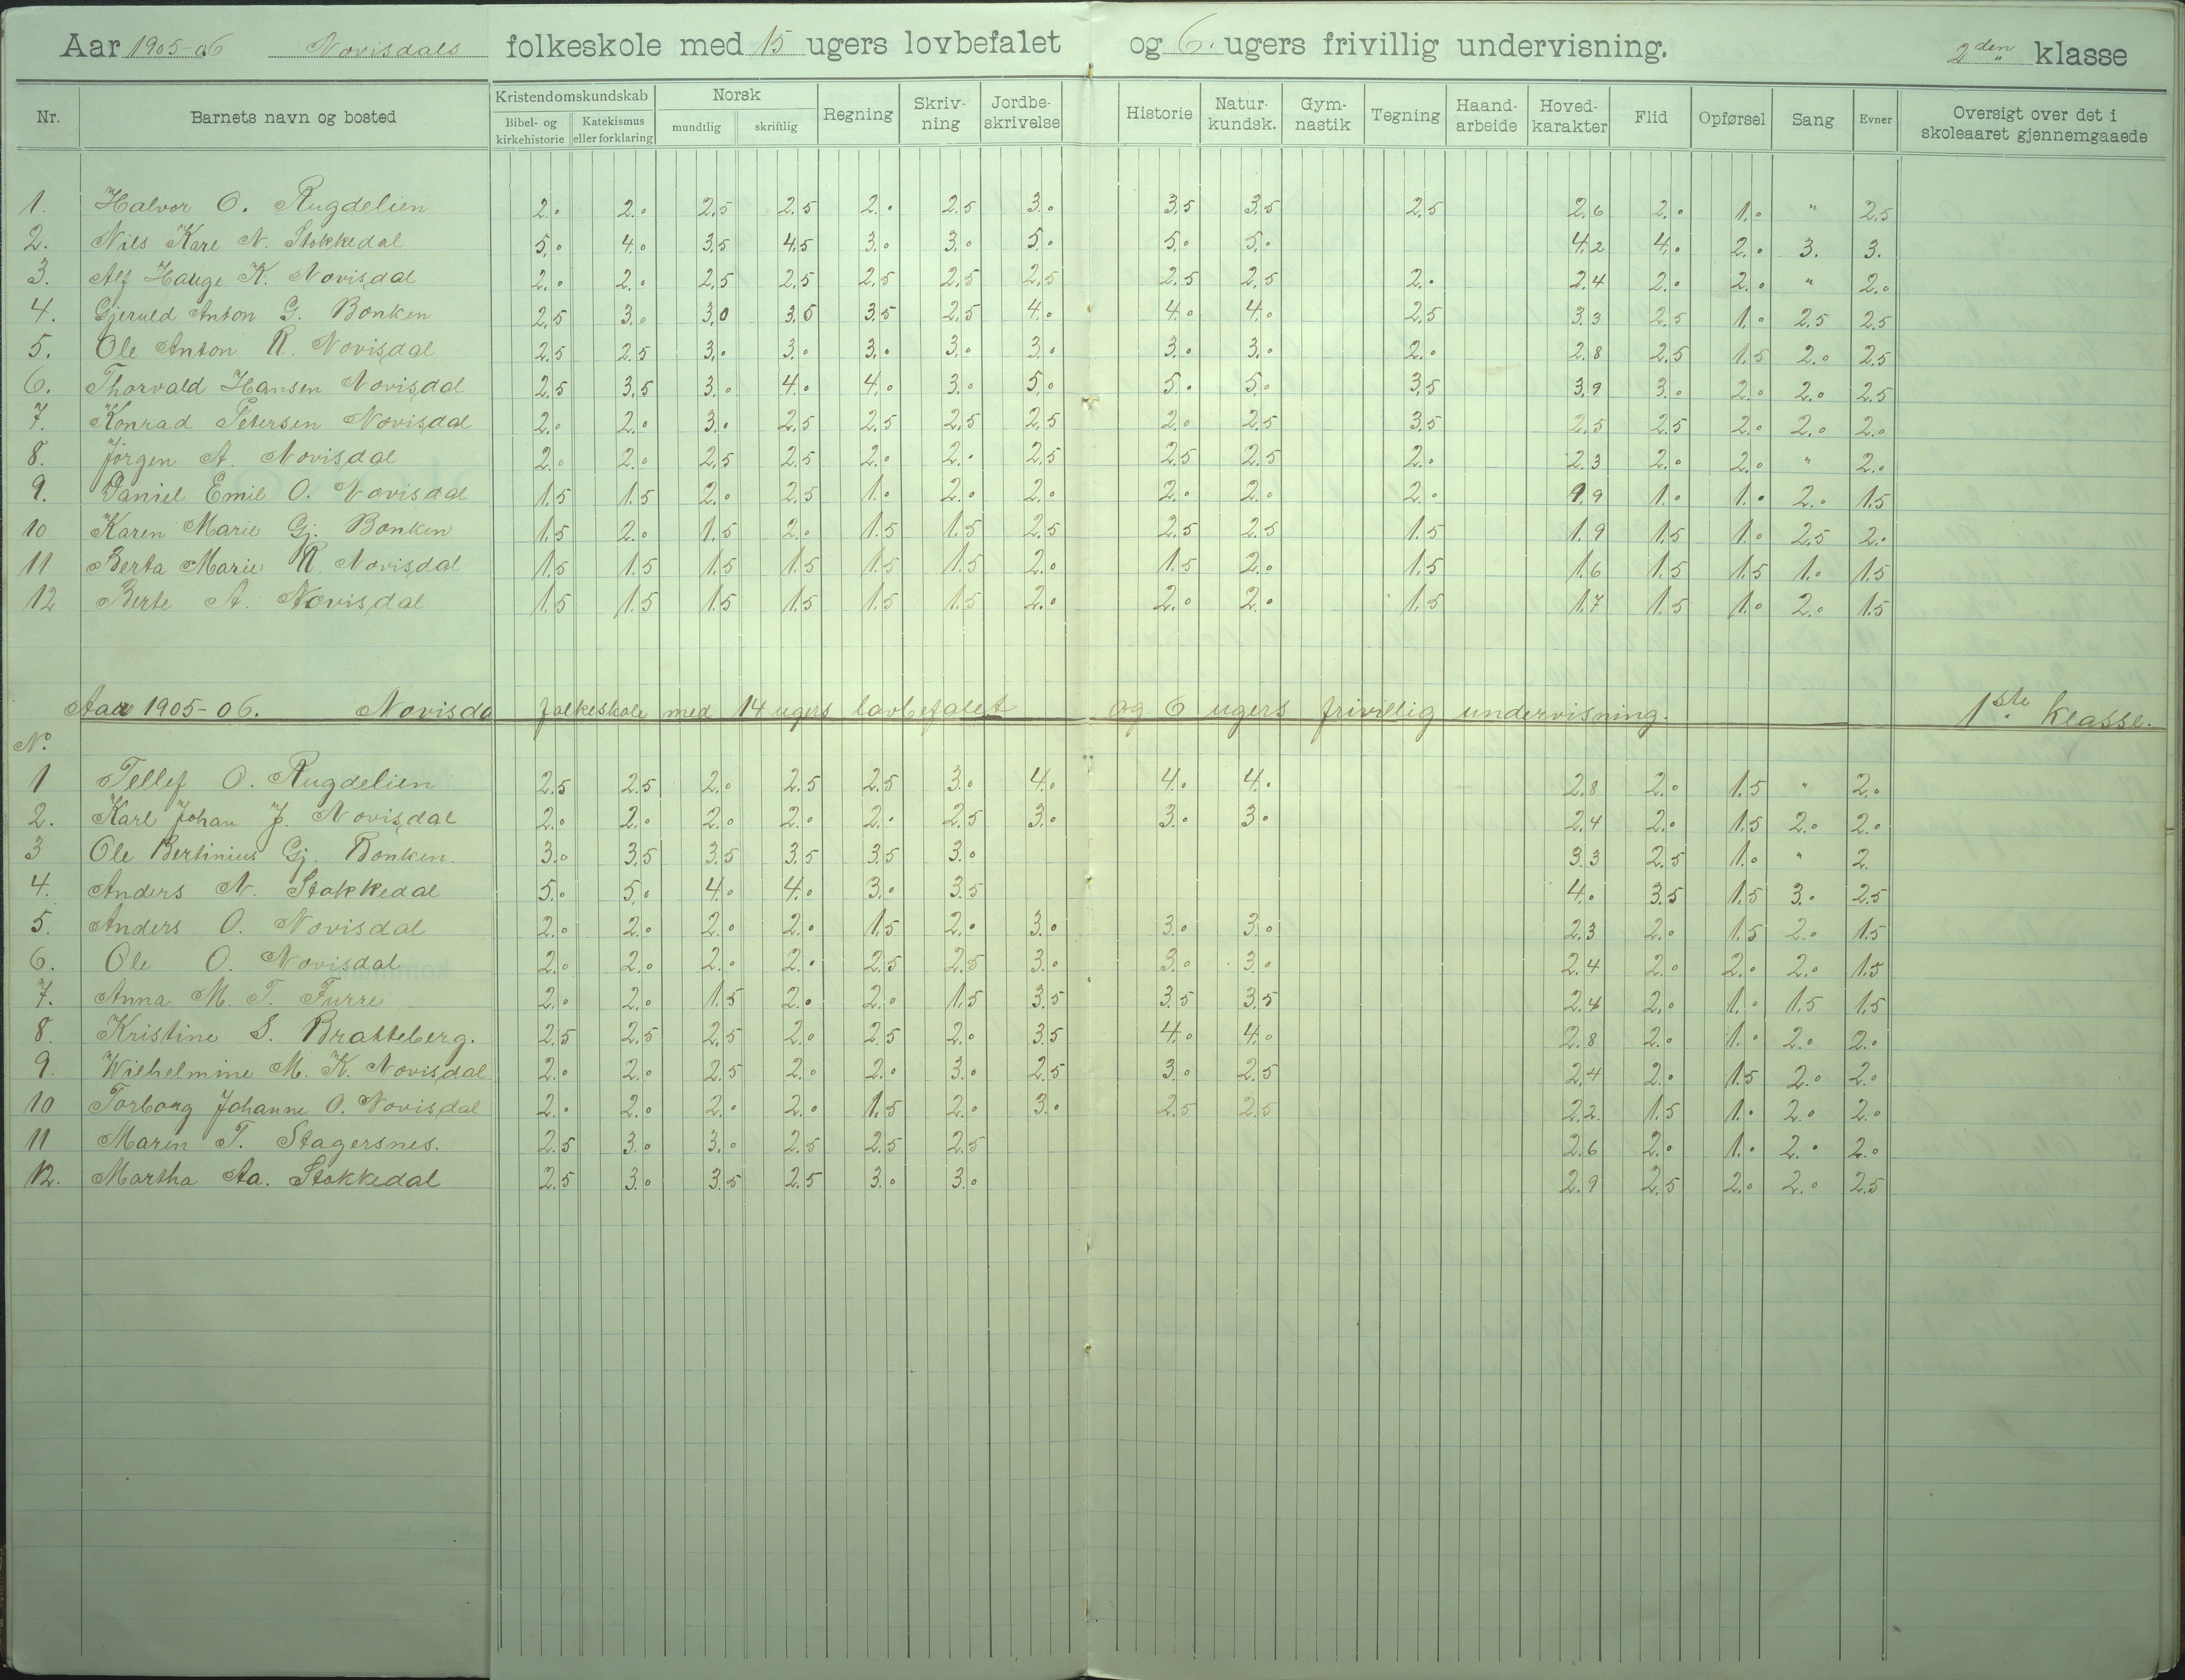 Aar 1905-06 Novisdals folkeskole med 15 ugers lovbefalet og 6. ugers frivillig undervisning. 2den klasse
Nr. Barnets navn og bosted Kristendomskundskab Bibel- og kirkehistorie Katekismus eller forklaring Norsk mundtlig skriftlig Regning Skrivning Jordbeskrivelse Historie Naturkundsk. Gymnastik Tegning Haandarbeide Hovedkarakter Flid Opførsel Sang Evner Oversigt over det i skoleaaret gjennemgaaede
1. Halvor O. Rugdelien 2.0 2.0 2.5 2.5 2.0 2.5 3.0 3.5 3.5 2.5 2.6 2.0 1.0 " 2.5
2. Nils Karl N. Stokkedal 5.0 4.0 3.5 4.5 3.0 3.0 5.0 5.0 5.0 4.2 4.0 2.0 3. 3.
3. Alf Hauge K. Novisdal 2.0 2.0 2.5 2.5 2.5 2.5 2.5 2.5 2.5 2.0 2.4 2.0 2.0 " 2.0
4. Gjeruld Anton G. Bonken 2.5 3.0 3.0 3.5 3.5 2.5 4.0 4.0 4.0 2.5 3.3 2.5 1.0 2.5 2.5
5. Ole Anton R. Novisdal 2.5 2.5 3.0 3.0 3.0 3.0 3.0 3.0 3.0 2.0 2.8 2.5 1.5 2.0 2.5
6. Thorvald Hansen Novisdal 2.5 3.5 3.0 4.0 4.0 3.0 5.0 5.0 5.0 3.5 3.9 3.0 2.0 2.0 2.5
7. Konrad Petersen Novisdal 2.0 2.0 3.0 2.5 2.5 2.5 2.5 2.0 2.5 3.5 2.5 2.5 2.0 2.0 2.0
8. Jörgen A. Novisdal 2.0 2.0 2.5 2.5 2.0 2.0 2.5 2.5 2.5 2.0 2.3 2.0 2.0 " 2.0
9. Daniel Emil O. Novisdal 1.5 1.5 2.0 2.5 1.0 2.0 2.0 2.0 2.0 2.0 1.9 1.0 1.0 2.0 1.5
10 Karen Marie Gj. Bonken 1.5 2.0 1.5 2.0 1.5 1.5 2.5 2.5 2.5 1.5 1.9 1.5 1.0 2.5 2.0
11 Berta Marie R. Novisdal 1.5 1.5 1.5 1.5 1.5 1.5 2.0 1.5 2.0 1.5 1.6 1.5 1.5 1.0 1.5
12 Berte A. Novisdal 1.5 1.5 1.5 1.5 1.5 1.5 2.0 2.0 2.0 1.5 1.7 1.5 1.0 2.0 1.5
Aar 1905-06. Novisda folkeskole med 14 ugers lovbefalet og 6 ugers frivillig undervisning. 1ste klasse.
No.
1 Tellef O. Rugdelien 2.5 2.5 2.0 2.5 2.5 3.0 4.0 4.0 4.0 2.8 2.0 1.5 " 2.0
2. Karl Johan J. Novisdal 2.0 2.0 2.0 2.0 2.0 2.5 3.0 3.0 3.0 2.4 2.0 1.5 2.0 2.0
3 Ole Bertinius Gj. Bonken. 3.0 3.5 3.5 3.5 3.5 3.0 3.3 2.5 1.0 " 2.
4. Anders N. Stokkedal 5.0 5.0 4.0 4.0 3.0 3.5 4.0 3.5 1.5 3.0 2.5
5. Anders O. Novisdal 2.0 2.0 2.0 2.0 1.5 2.0 3.0 3.0 3.0 2.3 2.0 1.5 2.0 1.5
6. Ole O. Novisdal 2.0 2.0 2.0 2.0 2.5 2.5 3.0 3.0 3.0 2.4 2.0 2.0 2.0 1.5
7. Anna M. T. Furre 2.0 2.0 1.5 2.0 2.0 1.5 3.5 3.5 3.5 2.4 2.0 1.0 1.5 1.5
8. Kristine S. Bratteberg. 2.5 2.5 2.5 2.0 2.5 2.0 3.5 4.0 4.0 2.8 2.0 1.0 2.0 2.0
9. Wilhelmine M. K. Novisdal 2.0 2.0 2.5 2.0 2.0 3.0 2.5 3.0 2.5 2.4 2.0 1.5 2.0 2.0
10 Torborg Johanne O. Novisdal 2.0 2.0 2.0 2.0 1.5 2.0 3.0 2.5 2.5 2.2 1.5 1.0 2.0 2.0
11 Maren T. Stagersnes. 2.5 3.0 3.0 2.5 2.5 2.5 2.6 2.0 1.0 2.0 2.0
12. Martha Aa. Stokkedal 2.5 3.0 3.5 2.5 3.0 3.0 2.9 2.5 2.0 2.0 2.5